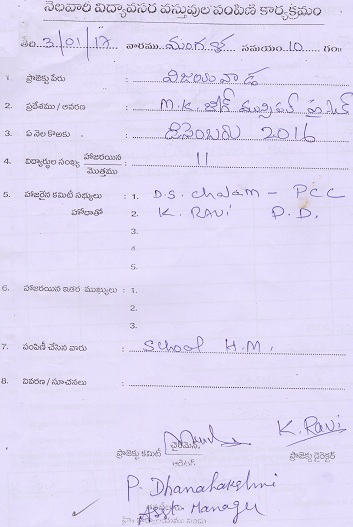 నెలవారి విద్యావసర వస్తువుల పంపిణి కార్యక్రమం
తేది 3/01/17 వారము మంగళ సమయం 10 గం॥
1. ప్రాజెక్టు పేరు : విజయవాడ
2. ప్రదేశము / ఆవరణ : M.K. బేగ్ మున్సిపల్ హైస్కూల్
3. ఏ నెల కొఱకు : డిసెంబరు 2016
4. విద్యార్థుల సంఖ్య హాజరయిన : 11
మొత్తము
5. హాజరైన కమిటీ సభ్యులు : 1. D.S. Chalam - PCC
హోదాతో 2. K. RAVI P.D.
3.
4.
5.
6. హాజరయిన ఇతర ముఖ్యులు : 1.
2.
3.
7. పంపిణీ చేసిన వారు : School H.M.
8. వివరణ / సూచనలు :
K. Ravi
ప్రాజెక్టు కమిటీ చైర్‌మెన్ ప్రాజెక్టు డైరెక్టర్
P. Dhanalakshmi
Manager